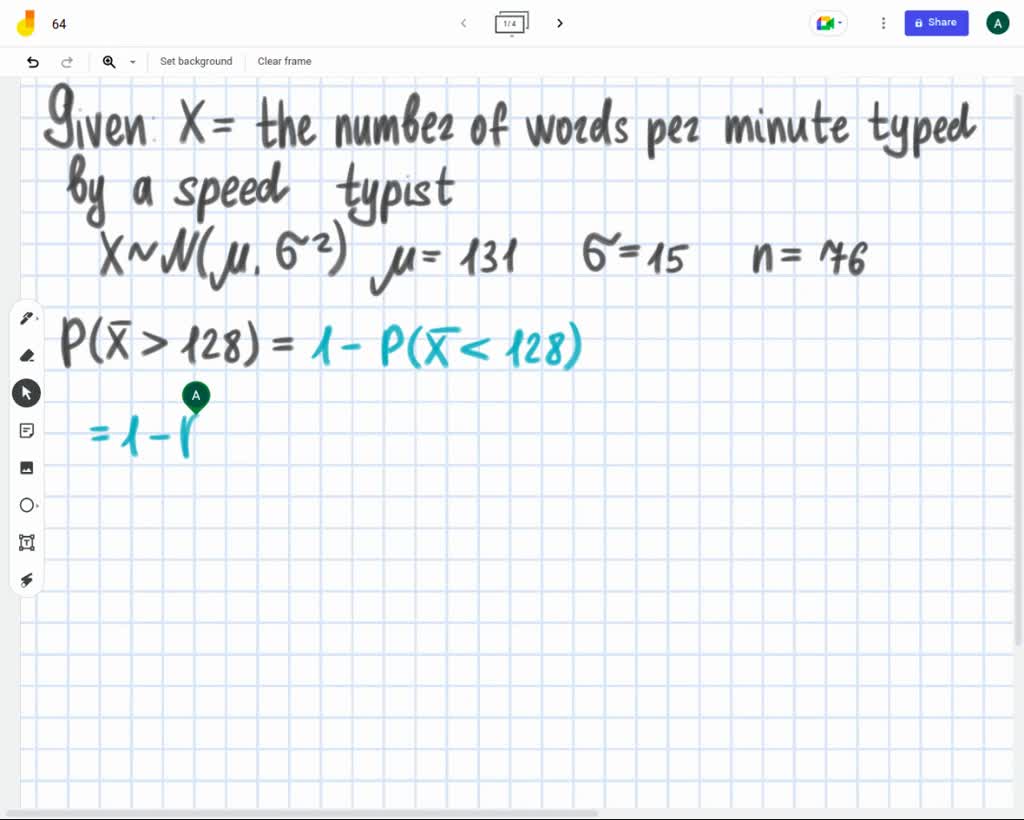 64
1/4
Share
A
Set background
Clear frame
Given: X = the number of words per minute typed
by a speed typist
X~N(μ, σ²) μ = 131 σ = 15 n = 76
P(x̄ > 128) = 1 - P(x̄ < 128)
A
= 1 - P